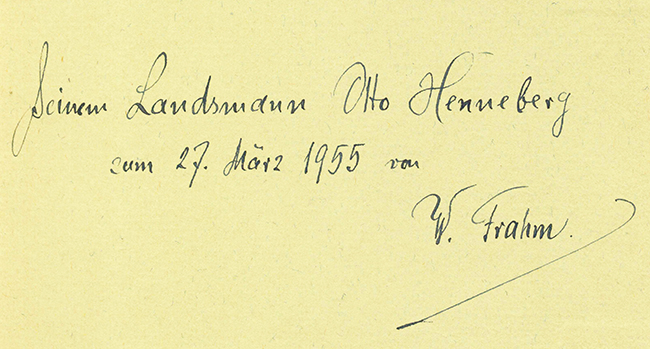 Seinem Landsmann Otto Henneberg
zum 27. März 1955 von
W. Frahm.